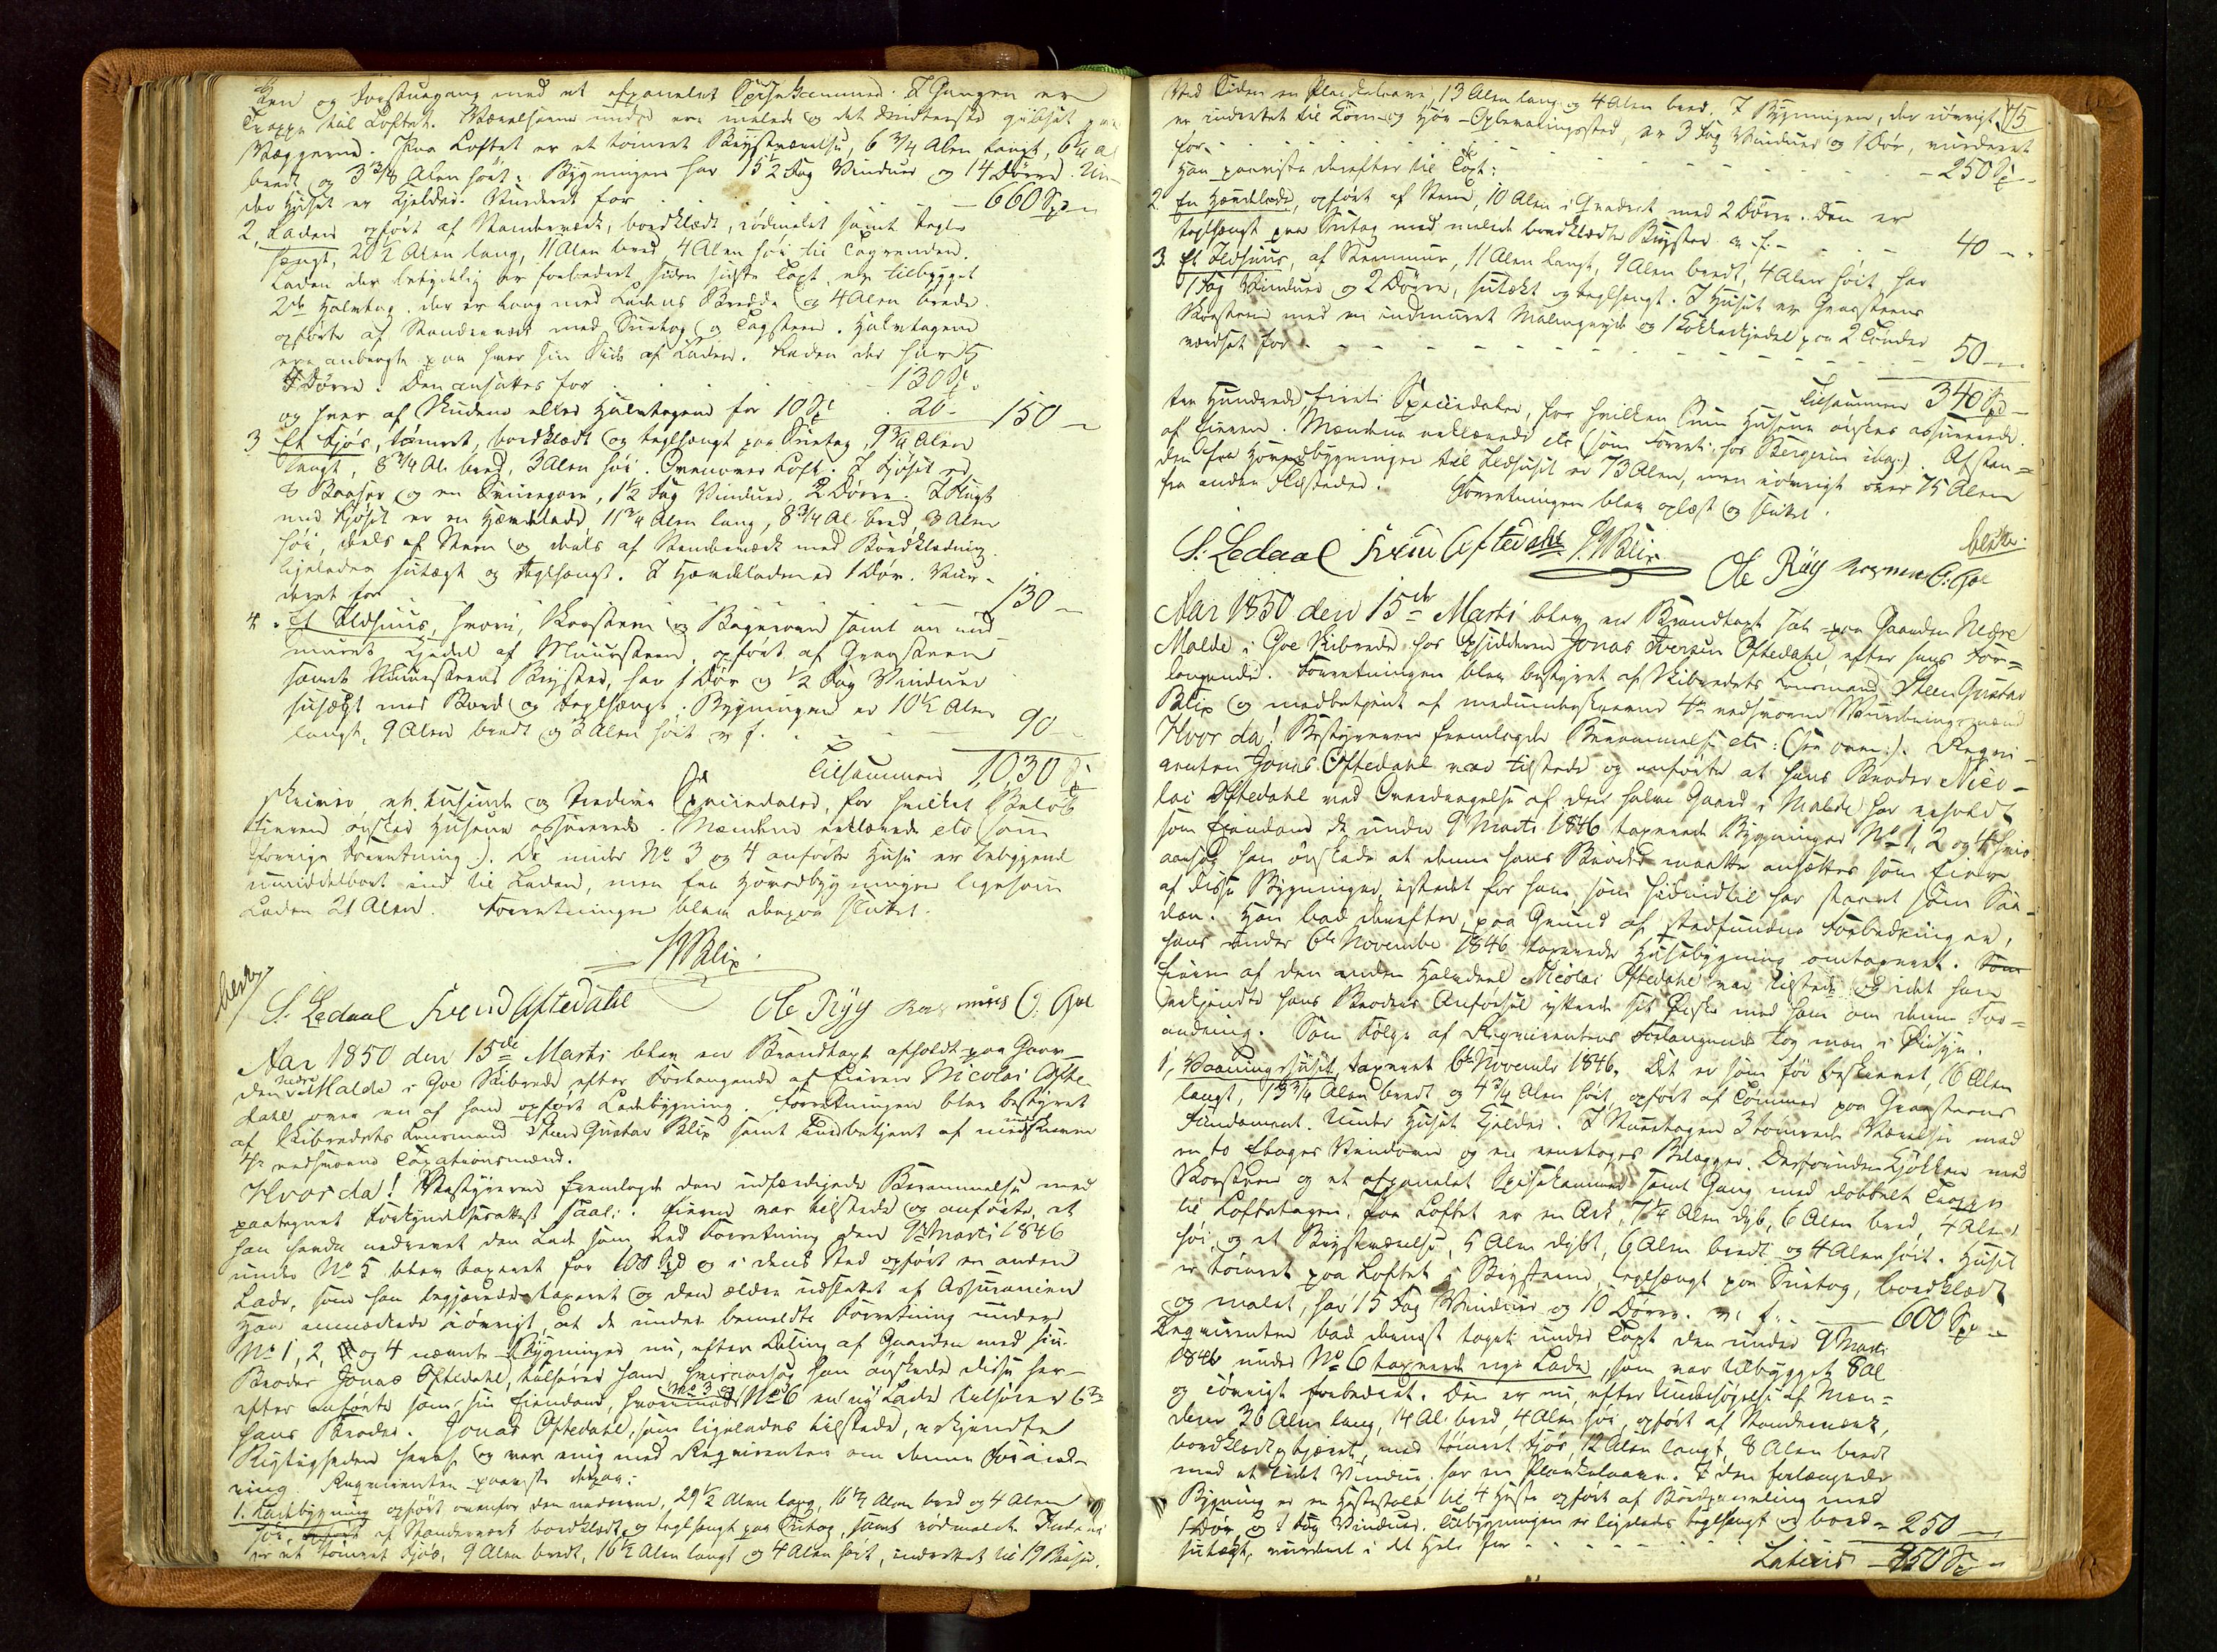 ken og Forstuegang med et afpanelet Spisekammer. I Gangen er
Trappe til Loftet. Værelserne nedre ere malede og det tredietrede gibset paa
Væggerne. Paa Loftet er et tømret Brystværelse, 6 3/4 Alen langt, 6 1/4 Al
bredt og 3 3/8 Alen høit. Bygningen har 15 1/2 Fag Vinduer og 14 Dørre. Un-
der Huset er Kjelder. Vurderet for 660 Spd
2, Laden opført af Standerværk, bordklædt, rødmalet samt tegl-
hængt, 20 1/2 Alen lang, 11 Alen bred 4 Alen høi til Tagrenden.
Laden der betydelig er forbedret siden sidste Taxt, er tilbygget
2de Halvtag, der er lang med Ladens Bredde og 4 Alen brede
opførte af Standerværk med Sutag og Tagsteen. Halvtagene
ere anbragte paa hver sin Side af Laden. Laden der har 5
Dørre. Den ansattes for 130 Sp.
og hver af Skudene eller Halvtagene for 10 Sp. 20 - 150 -
3 Et Fjøs, tømret, bordklædt og teglhængt paa Sutag, 9 3/4 Alen
langt, 8 3/4 Al. bred, 3 Alen høi. Ovenover Loft. I Fjøset er
8 Baaser og en Svinegaard, 1 1/2 Fag Vinduer, 2 Dørre. I Flugt
med Fjøset er en Hændelade, 11 3/4 Alen lang, 8 3/4 Al. bred, 3 Alen
høi, deels af Steen og deels af Standerværk med Bordklædning
ligeledes sutægt og teglhængt. I Hændeladen er 1 Dør. Vur-
deret for 130 -
4. Et Ildhuus, hvori Skorsteen og Bagerovn samt en ind-
muret Kjedel af Muursteen, opført af Graasteen
samt Muursteens Bryster, har 1 Dør og 1/2 Fag Vinduer
sutægt med Bord og teglhængt. Bygningen er 10 1/2 Alen
langt, 9 Alen bredt og 3 Alen høit v. f. 90 -
Tilsammen 1,030 Sp
skriver et tusinde og tredive Speciedaler, for hvilket Beløb
Eieren ønsker Husene assurerede. Mændene erklærede etc (som
forrige Forretning). De under No 3 og 4 anførte Huse er bebyggende
umiddelbart ind til Laden, men fra Hovedbygningen ligesom
Laden 21 Alen. Forretningen blev derpaa sluttet.
SGBlix.
S. Ledaal Svend Aftedahl Ole Røyg Rasmus O. Goe
Aar 1850 den 15de Marts blev en Brandtaxt afholdt paa Gaar-
den nedre Malde i Goe Skibrede efter Forlangende af Eieren Nicolai Ofte-
dahl over en af ham opført Ladebygning. Forretningen blev bestyret
af Skibredets Lensmand Steen Gustav Blix samt medbetjent af medskrevne
4re eedsvorne Taxationsmænd.
Hvorda! Bestyreren fremlagde den udfærdigede Berammelse med
paategnet Forkyndelsesattest saal: . Eieren var tilstede og anførte, at
han havde nedrevet den Lade som ved Forretning den 9de Marts 1846
under No 5 blev taxeret for 100 Spd og i dens Sted opført en anden
Lade, som han begjærede taxeret og den ældre udslettet af Assurancen
Han anmærkede iøvrigt, at de under bemeldte Forretning under
No 1, 2, og 4 nævnte Bygninger nu, efter Deling af Gaarden med sin
Broder Jonas Oftedahl, tilhører ham, hvisaarsag han ønskede disse her-
efter anførte som sin Eiendom, hvorimod No 3 og No 6 en ny Lade tilhører
hans Broder. Jonas Oftedahl, som ligeledes tilstede, erkjendte
Rigtigheden heraf og var enig med Requirenten om denne Forand-
ring. Requirenten paaviste derpaa:
1. Ladebygning opført ovenfor den nedrevne, 29 1/2 Alen lang, 16 1/2 Alen bred og 4 Alen
høi, opført af Standerværk bordklædt og teglhængt paa Sutag, samt rødmalet. Inden i
er et tømret Fjøs, 9 Alen bredt, 16 1/2 Alen langt og 4 Alen høit, indrettet til 19 Baaser.
75
Ved Siden en Planckelaave, 13 Alen lang og 4 Alen bred. I Bygningen, der iøvrigt
er indrettet til Korn- og Høe-Opbevaringssted, er 3 Fag Vinduer og 1 Dør, vurderet
for 250 Sp
Han paaviste derefter til Taxt:
2 En Hændelade, opført af Steen, 10 Alen i Quadrat med 2 Dørre. Den er
teglhængt paa Sutag med malede bordklædte Bryster v. f. 40 -
3. Et Ildhuus, af Steenmuur, 11 Alen langt, 9 Alen bredt, 4 Alen høit, har
1 Fag Vinduer og 2 Dørre, sutækt og teglhængt. I Huset er Graasteens
Skorsteen med en indmuret Maltgryde og 1 Kokkekjedel paa 2 Tønder
værdsat for 50 -
Tilsammen 340 Spd
tre Hundrede fireti Speciedaler, for hvilken Sum Husene ønskes assurerede
af Eieren. Mændene erklærede etc (som Forret: hos Bergesen idag). Afstan-
den fra Hovedbygningen til Ildhuset er 73 Alen, men iøvrigt over 75 Alen
fra andre Ildsteder. Forretningen blev oplæst og sluttet.
S. Ledaal Svend Aftedahl SGBlix Ole Røyg Rasmus O. Goe
Aar 1850 den 15de Marts blev en Brandtaxt holt paa Gaarden Nedre
Malde i Goe Skibrede, hos Opsidderen Jonas Iversen Oftedahl, efter hans For-
langende. Forretningen blev bestyret af Skibredets Lensmand Steen Gustav
Blix og medbetjent af medunderskrevne 4re eedsvorne Vurderingsmænd
Hvorda! Bestyreren fremlagde Berammelse etc: (see ovenf:). Requi-
renten Jonas Oftedahl var tilstede og anførte at hans Broder Nico-
lai Oftedahl ved Overdragelse af den halve Gaard i Malde har erholdt
som Eiendom de under 9de Marts 1846 taxerede Bygninger No 1, 2 og 4, hvis-
aarsag han ønskede at denne hans Broder maatte ansættes som Eier
af disse Bygninger, istedet for ham, som hidindtil har staaet som Saa-
dan. Han bad derefter, paa Grund af stedfundne Forbedringer,
hans under 6te November 1846 taxerede Husebygning omtaxeret.
Eieren af den anden Halvdeel Nicolai Oftedahl var tilstede og idet han
erkjendte hans Broders Anførsel yttrede sit Ønske med ham om denne For-
andring. Som Følge af Requirentens Forlangende tog man i Øiesyn.
1, Vaaningshuset, taxeret 6te November 1846. Det er som før beskrevet, 16 Alen
langt, 13 3/4 Alen bredt og 4 3/4 Alen høit, opført af Tømmer paa Graasteens
Fundament. Under Huset Kjelder. I Stueetagen 3 tømrede Værelser med
en to Etages Vindovn og en eenetages Bilægger. Desforuden Kjøkken med
Skorsteen og et afpanelet Spisekammer samt Gang med dobbelt Trappe
til Loftsetagen. Paa Loftet er en Ark, 7 1/4 Alen dyb, 6 Alen bred, 4 Alen
høi, og et Brystværelse, 5 Alen dybt, 6 Alen bredt og 4 Alen høit. Huset
er tømret paa Loftet i Brysterne, teglhængt paa Sutag, bordklædt
og malet, har 15 Fag Vinduer og 10 Dørre. v. f. 600 Spd
Requirenten bad dernæst taget under Taxt den under 9 Marts
1846 under No 6 taxerede nye Lade, som var tilbygget 8 Al
og iøvrigt forbedret. Den er nu, efter Undersøgelse af Mæn-
dene 36 Alen lang, 14 Al. bred, 4 Alen høi, opført af Standerværk,
bordklædt og tjæret, med tømret Fjøs, 12 Alen langt, 8 Alen bredt
med et lidet Vindue, har en Planckelaave. I den forlængede
Bygning er en Hestestald til 4 Heste opført af Bordpaneling med
1 Dør og 1 Fag Vinduer. Tilbygningen er ligeledes teglhængt og bord-
sutægt, vurderet i det Hele for 250 -
Lateris 850 Sp